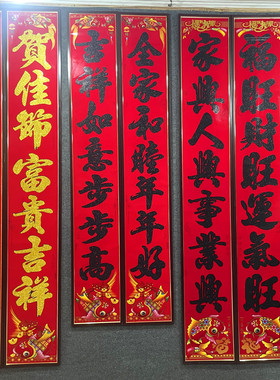 福旺財旺運氣旺
家興人興事業興
全家和睦年年好
吉祥如意步步高
賀佳節富貴吉祥